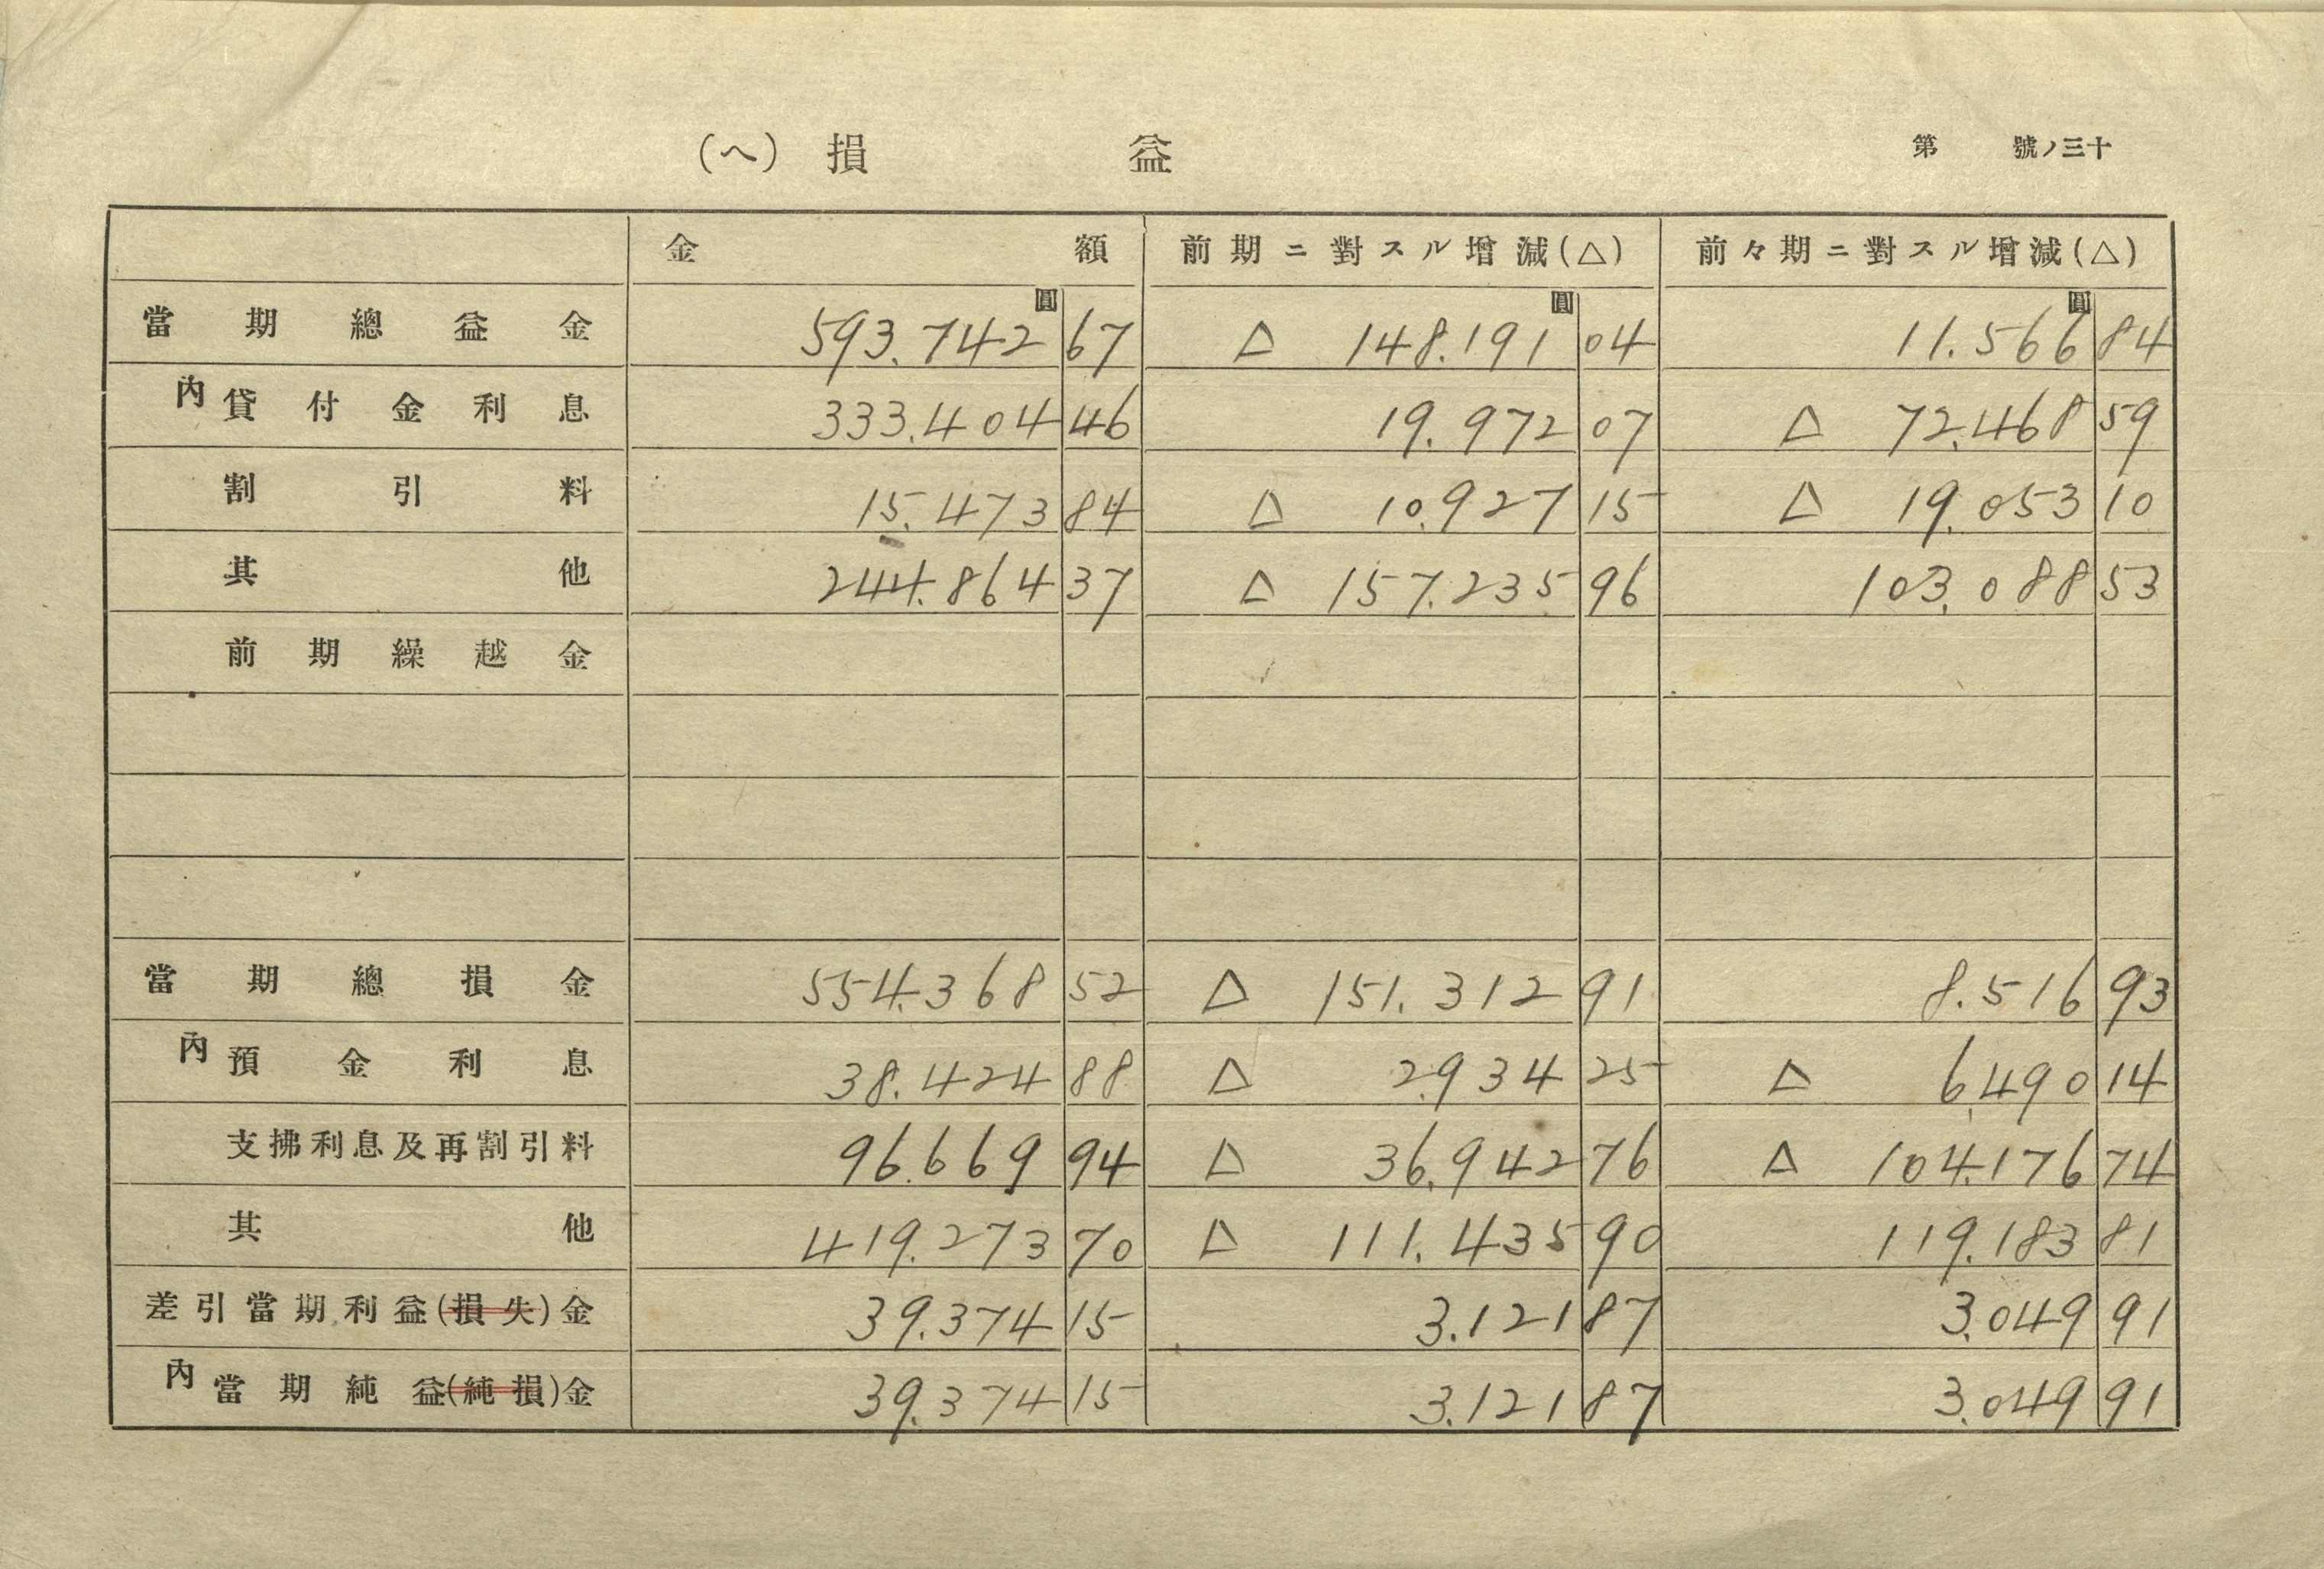 (ヘ) 損 益 第 號ノ三十
金 額 前期ニ對スル增減(△) 前々期ニ對スル增減(△)
當期總益金 593.742圓67 △ 148.191圓04 11.566圓84
內貸付金利息 333.404 46 19.972 07 △ 72.468 59
割引料 15.473 84 △ 10.927 15 △ 19.053 10
其他 244.864 37 △ 157.235 96 103.088 53
前期繰越金
當期總損金 554.368 52 △ 151.312 91 8.516 93
內預金利息 38.424 88 △ 2.934 25 △ 6.490 14
支拂利息及再割引料 96.669 94 △ 36.942 76 △ 104.176 74
其他 419.273 70 △ 111.435 90 119.183 81
差引當期利益(損失)金 39.374 15 3.121 87 3.049 91
內當期純益(純損)金 39.374 15 3.121 87 3.049 91